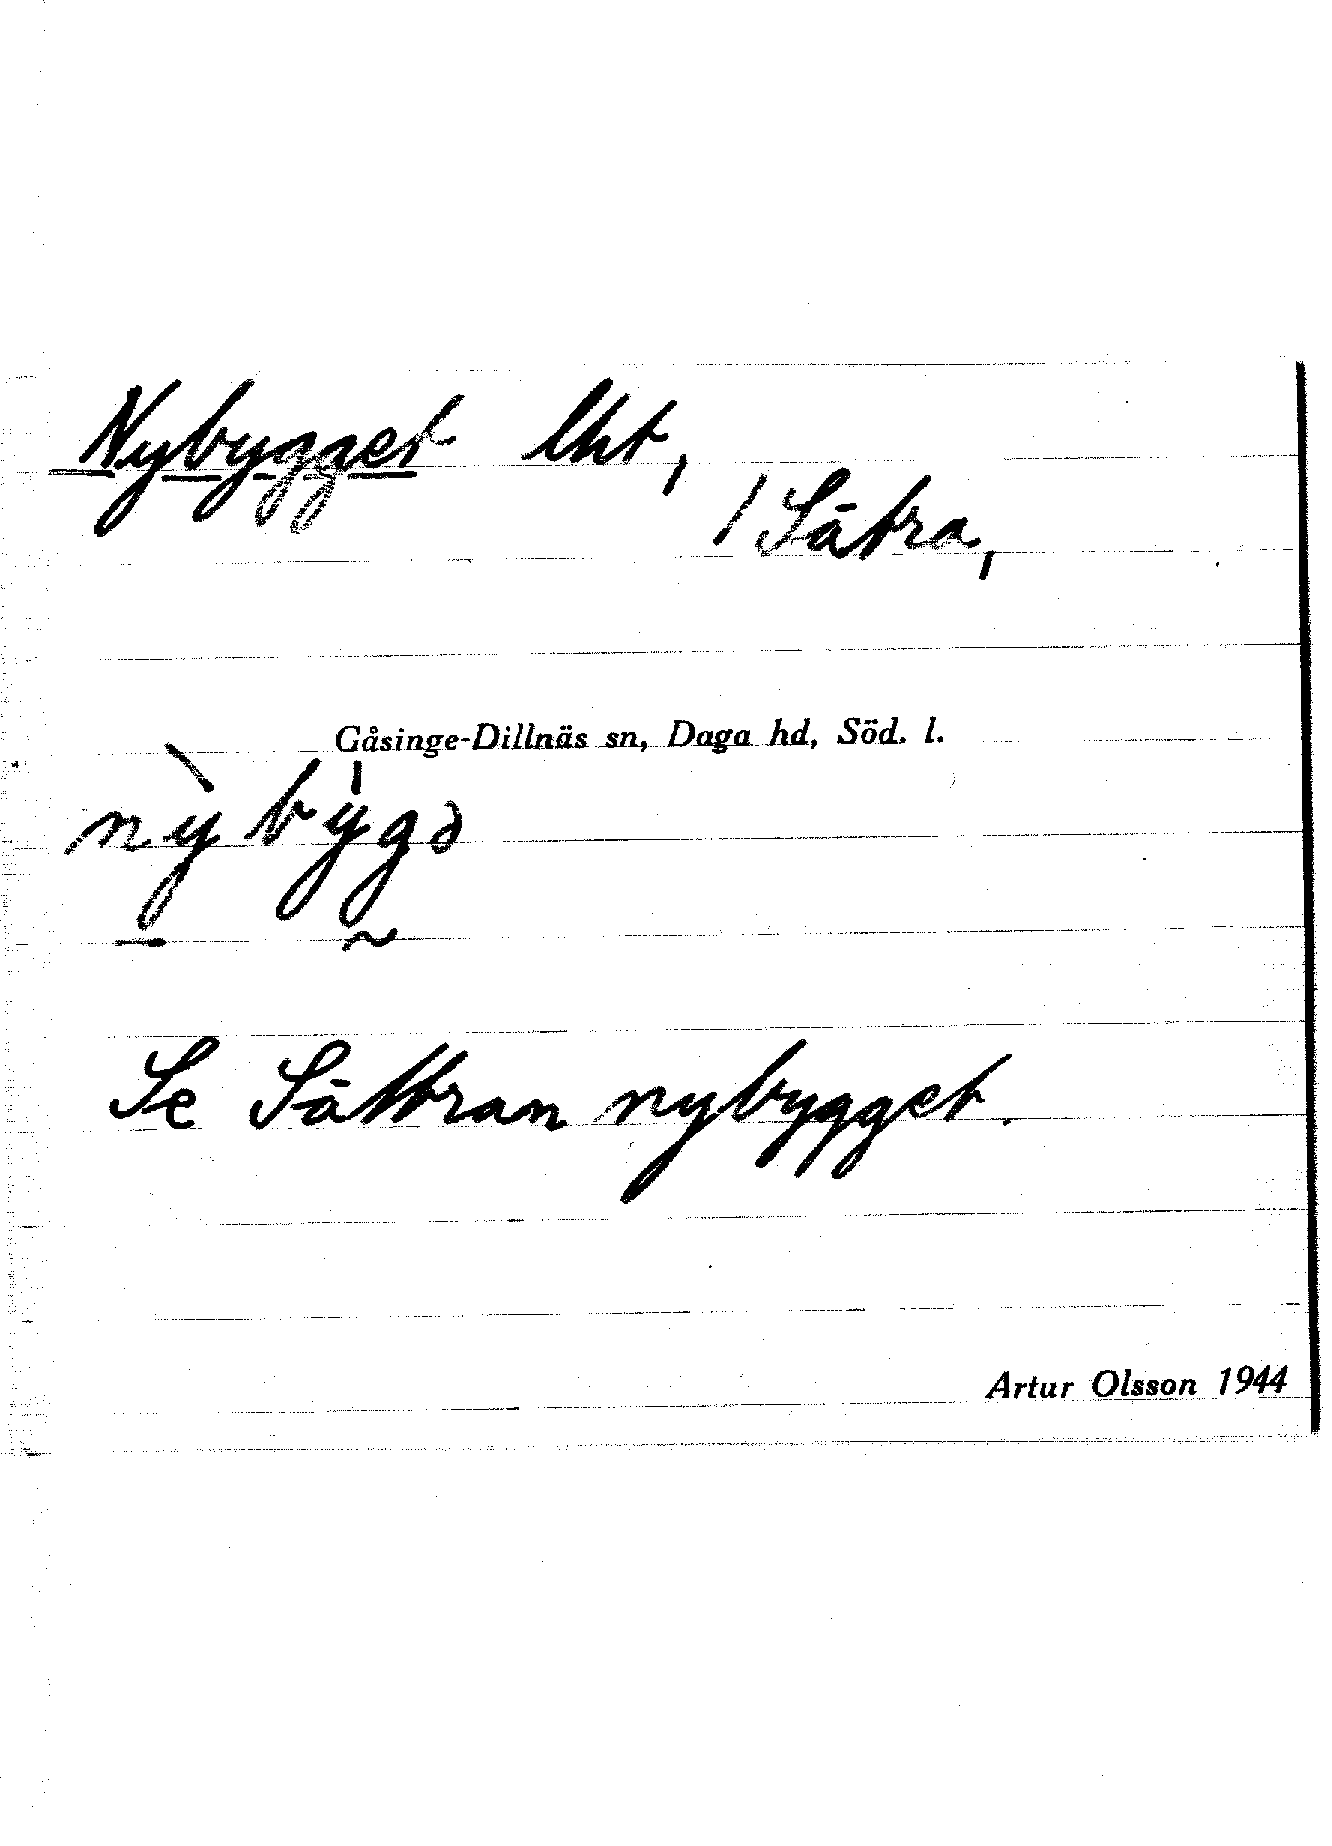 Nybygget lht,
/ Sätra,
Gåsinge-Dillnäs sn, Daga hd, Söd. l.
nỳbẏgə
Se Sättran nybygget.
Artur Olsson 1944